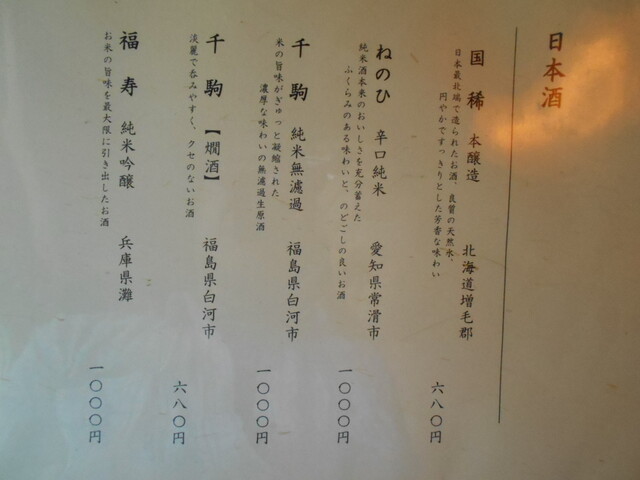 日本酒
国稀 本醸造 北海道増毛郡
日本最北端で造られたお酒、良質の天然水、
円やかですっきりとした芳香な味わい
六八〇円
ねのひ 辛口純米 愛知県常滑市
純米酒本来のおいしさを充分蓄えた
ふくらみのある味わいと、のどごしの良いお酒
一〇〇〇円
千駒 純米無濾過 福島県白河市
米の旨味がぎゅっと凝縮された
濃厚な味わいの無濾過生原酒
一〇〇〇円
千駒【燗酒】 福島県白河市
淡麗で呑みやすく、クセのないお酒
六八〇円
福寿 純米吟醸 兵庫県灘
お米の旨味を最大限に引き出したお酒
一〇〇〇円